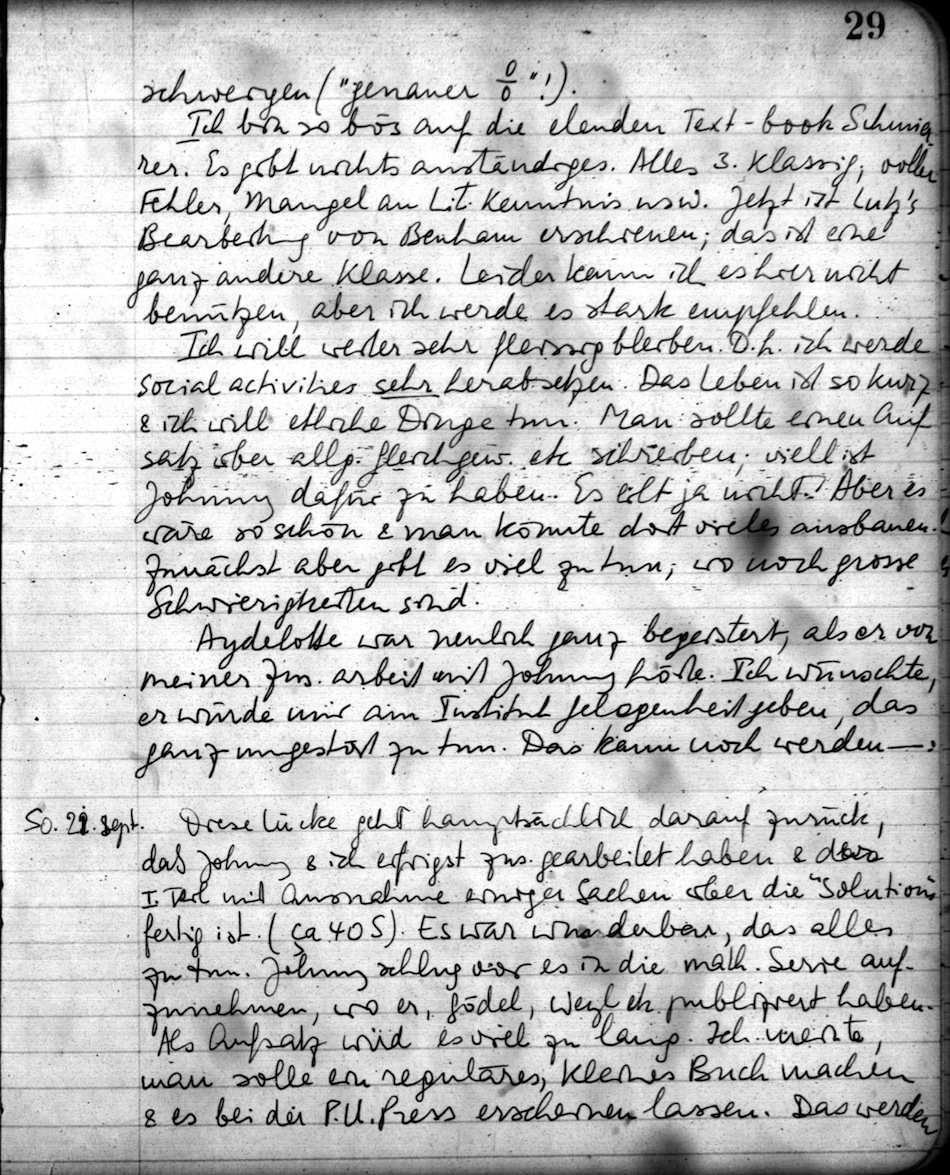 29
schweigen ("genauer 0/0"!).
Ich bin so bös auf die elenden Text-book Schmie
rer. Es gibt nichts anständiges. Alles 3. klassig, voller
Fehler, Mangel an Lit. Kenntnis usw. Jetzt ist Lutz's
Bearbeitung von Benham erschienen; das ist eine
ganz andere Klasse. Leider kann ich es hier nicht
benützen, aber ich werde es stark empfehlen.
Ich will weiter sehr fleissig bleiben. D.h. ich werde
social activities sehr herabsetzen. Das Leben ist so kurz
& ich will etliche Dinge tun. Man sollte einen Auf
satz über allg. Gleichgew. etc schreiben; viell ist
Johnny dafür zu haben. Es eilt ja nicht! Aber es
wäre so schön & man könnte dort vieles ausbauen.
Zunächst aber gibt es viel zu tun, wo noch grosse
Schwierigkeiten sind.
Aydelotte war neulich ganz begeistert, als er von
meiner Zus.arbeit mit Johnny hörte. Ich wünschte,
er würde mir am Institut Gelegenheit geben, das
ganz ungestört zu tun. Das kann noch werden —.
So. 21. Sept. Diese Lücke geht hauptsächlich darauf zurück,
daß Johnny & ich eifrigst zus. gearbeitet haben & der
I Teil mit Ausnahme einiger Sachen über die "Solution"
fertig ist. (ca 40 S). Es war wunderbar, das alles
zu tun. Johnny schlug vor es in die math. Serie auf-
zunehmen, wo er, Gödel, Weyl etc. publiziert haben.
Als Aufsatz wird es viel zu lang. Ich meinte,
man solle ein reguläres, kleines Buch machen
& es bei der P.U.Press erscheinen lassen. Das werden